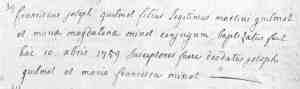 franciscus joseph quelmet filius legitimus martini quelmet
et maria magdalena minot conjugum baptizatus fuit
hac 10 abris 1759 susceptores fuere deodatus joseph
quelmet et maria francisca minot